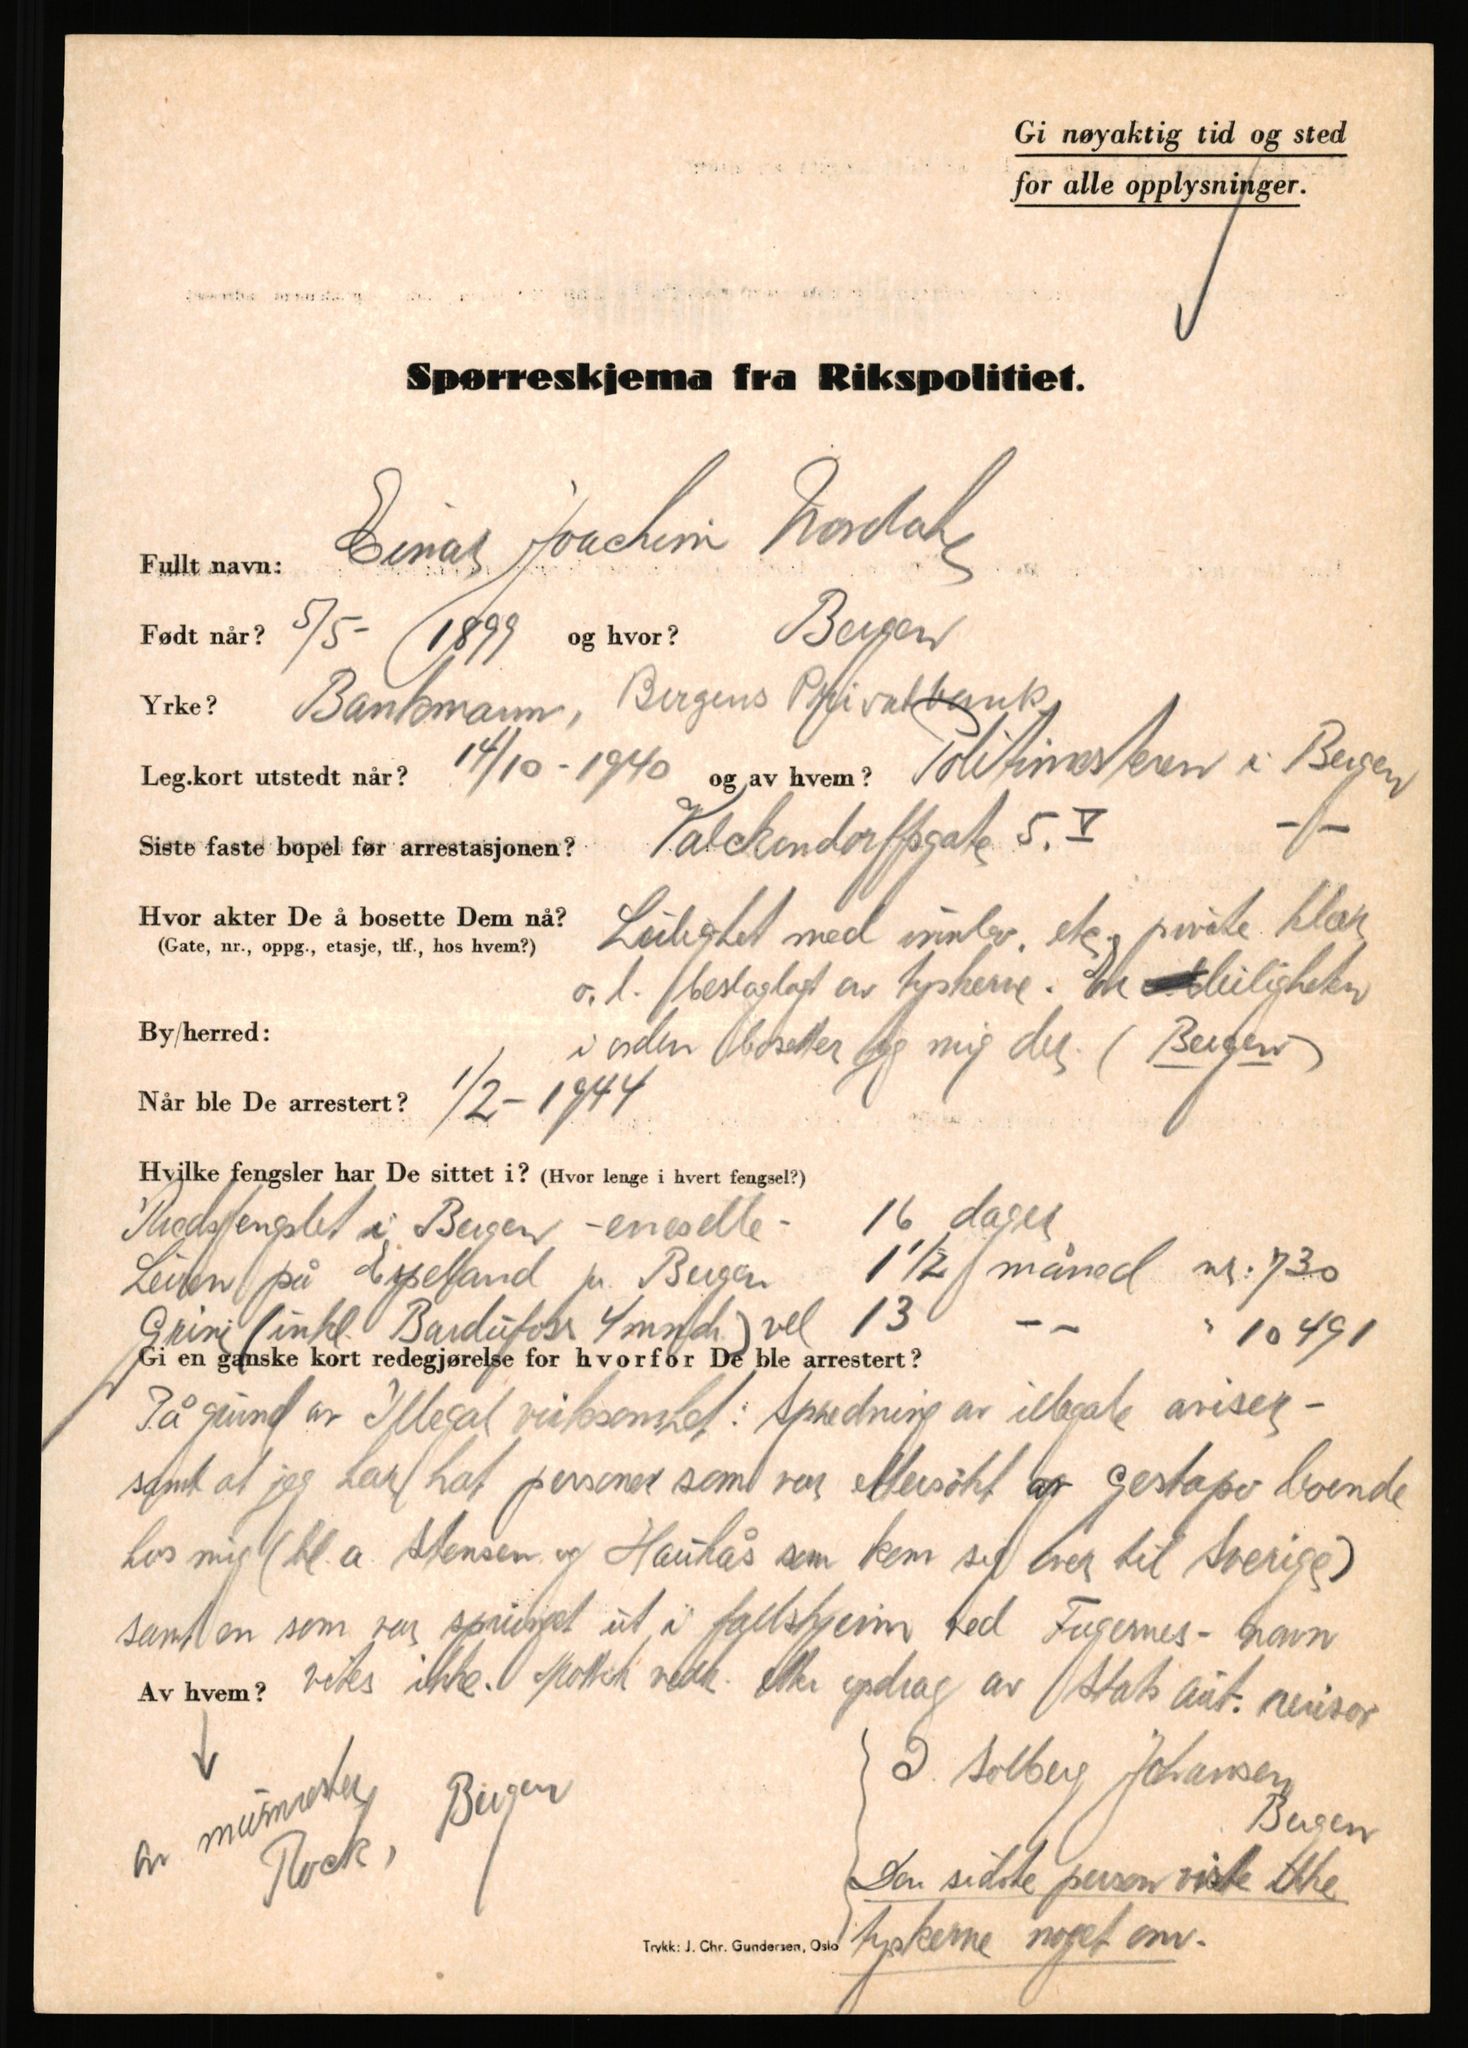 Gi nøyaktig tid og sted
for alle opplysninger.
Spørreskjema fra Rikspolitiet.
Fullt navn: Einar Joachim Nordahl
Født når? 5/5- 1899 og hvor? Bergen
Yrke? Bankmann, Bergens Privatbank
Leg.kort utstedt når? 14/10-1940 og av hvem? Politimesteren i Bergen
Siste faste bopel før arrestasjonen? Valckendorffsgate 5. V -"-
Hvor akter De å bosette Dem nå? Leilighet med innbo. etc, private klær
(Gate, nr., oppg., etasje, tlf., hos hvem?)
o.l. beslaglagt av tyskerne. Er leiligheten
By/herred: i orden bosetter jeg mig der. (Bergen)
Når ble De arrestert? 1/2-1944
Hvilke fengsler har De sittet i? (Hvor lenge i hvert fengsel?)
Kredsfengslet i Bergen -enecelle- 16 dager
Leiren på Espeland pr. Bergen 1 1/2 måned nr: 730
Grini (inkl. Bardufoss 4 mndr.) vel 13 -"- " 10491
Gi en ganske kort redegjørelse for hvorfor De ble arrestert?
På grund av Illegal virksomhet: Spredning av illegale aviser -
samt at jeg har hat personer som var ettersökt av Gestapo boende
hos mig (bl. a. Stensen og Haukås som kom sig over til Sverige)
samt en som var sprunget ut i fallskjerm ved Fugernes - navn
vites ikke. Mottok vedk. etter opdrag av Stats aut. revisor
Av hvem?
av
Rock, Bergen
Solberg Johansen
Bergen
Den sidste person viste ikke
tyskerne noget om.
Trykk: J. Chr. Gundersen, Oslo